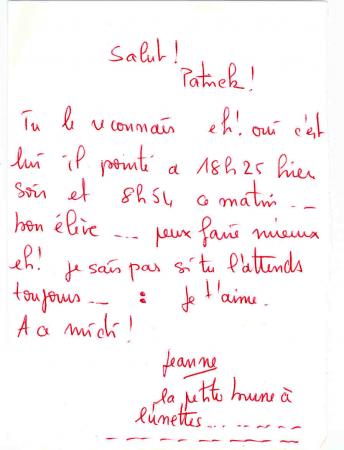 Salut !
Patrick !
Tu le reconnais eh! oui c'est
lui il pointé a 18h25 hier
soir et 8h54 ce matin...
bon élève... peux faire mieux
eh! je sais pas si tu l'attends
toujours... : Je t'aime.
A ce midi !
Jeanne
la petite brune à
lunettes...